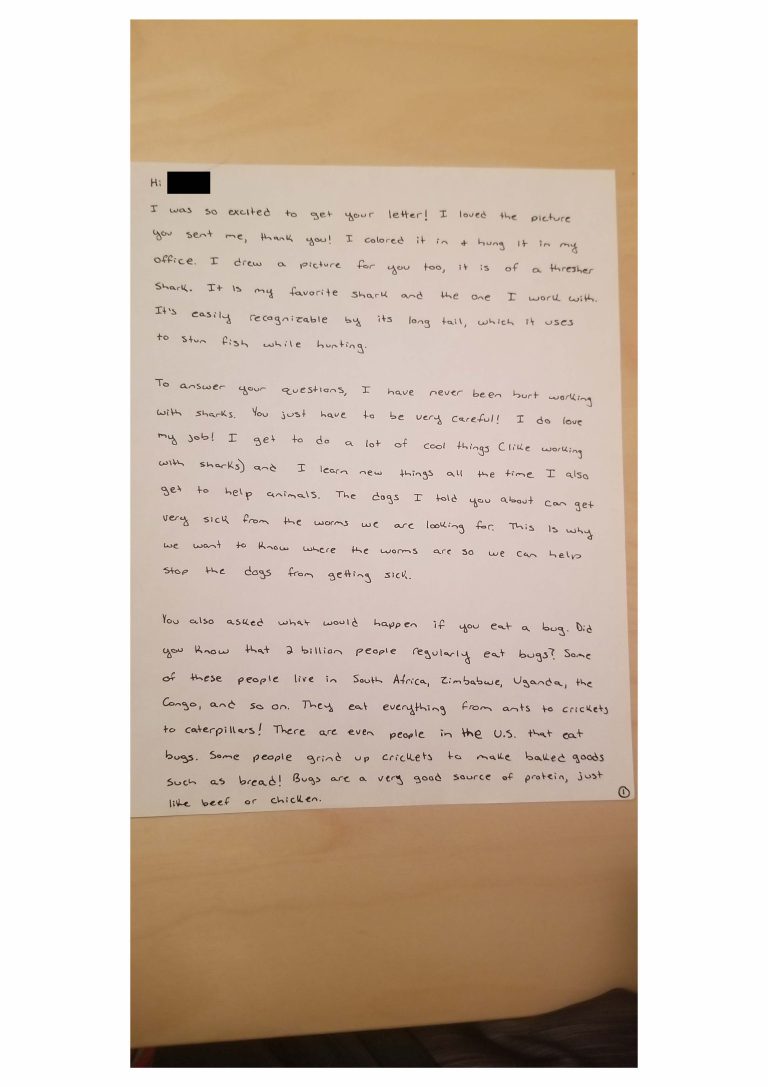 Hi
I was so excited to get your letter! I loved the picture
you sent me, thank you! I colored it in + hung it in my
office. I drew a picture for you too, it is of a thresher
shark. It is my favorite shark and the one I work with.
It's easily recognizable by its long tail, which it uses
to stun fish while hunting.
To answer your questions, I have never been hurt working
with sharks. You just have to be very careful! I do love
my job! I get to do a lot of cool things (like working
with sharks) and I learn new things all the time I also
get to help animals. The dogs I told you about can get
very sick from the worms we are looking for. This is why
we want to know where the worms are so we can help
stop the dogs from getting sick.
You also asked what would happen if you eat a bug. Did
you know that 2 billion people regularly eat bugs? Some
of these people live in South Africa, Zimbabwe, Uganda, the
Congo, and so on. They eat everything from ants to crickets
to caterpillars! There are even people in the U.S. that eat
bugs. Some people grind up crickets to make baked goods
such as bread! Bugs are a very good source of protein, just
like beef or chicken.
1